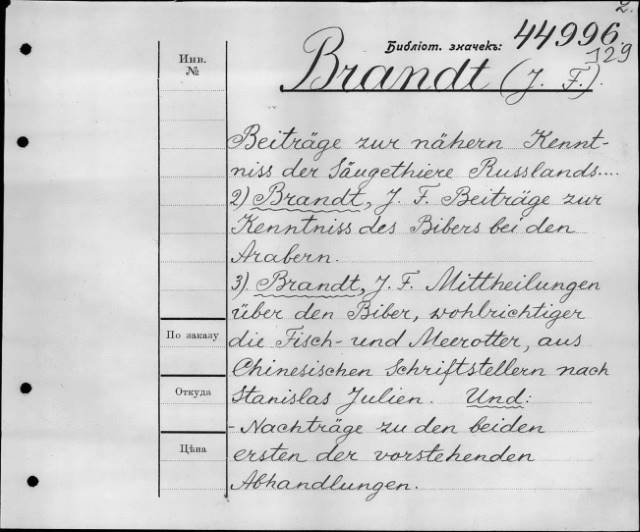 2.
Библіот. значекъ: 44996
129
Инв.
№
Brandt (J. F.).
Beiträge zur nähern Kennt-
niss der Säugethiere Russlands....
2) Brandt, J. F. Beiträge zur
Kenntniss des Bibers bei den
Arabern.
3). Brandt, J. F. Mittheilungen
über den Biber, wohlrichtiger
По заказу
die Fisch- und Meerotter, aus
Chinesischen Schriftstellern nach
Откуда
Stanislas Julien. Und:
- Nachträge zu den beiden
Цѣна
ersten der vorstehenden
Abhandlungen.